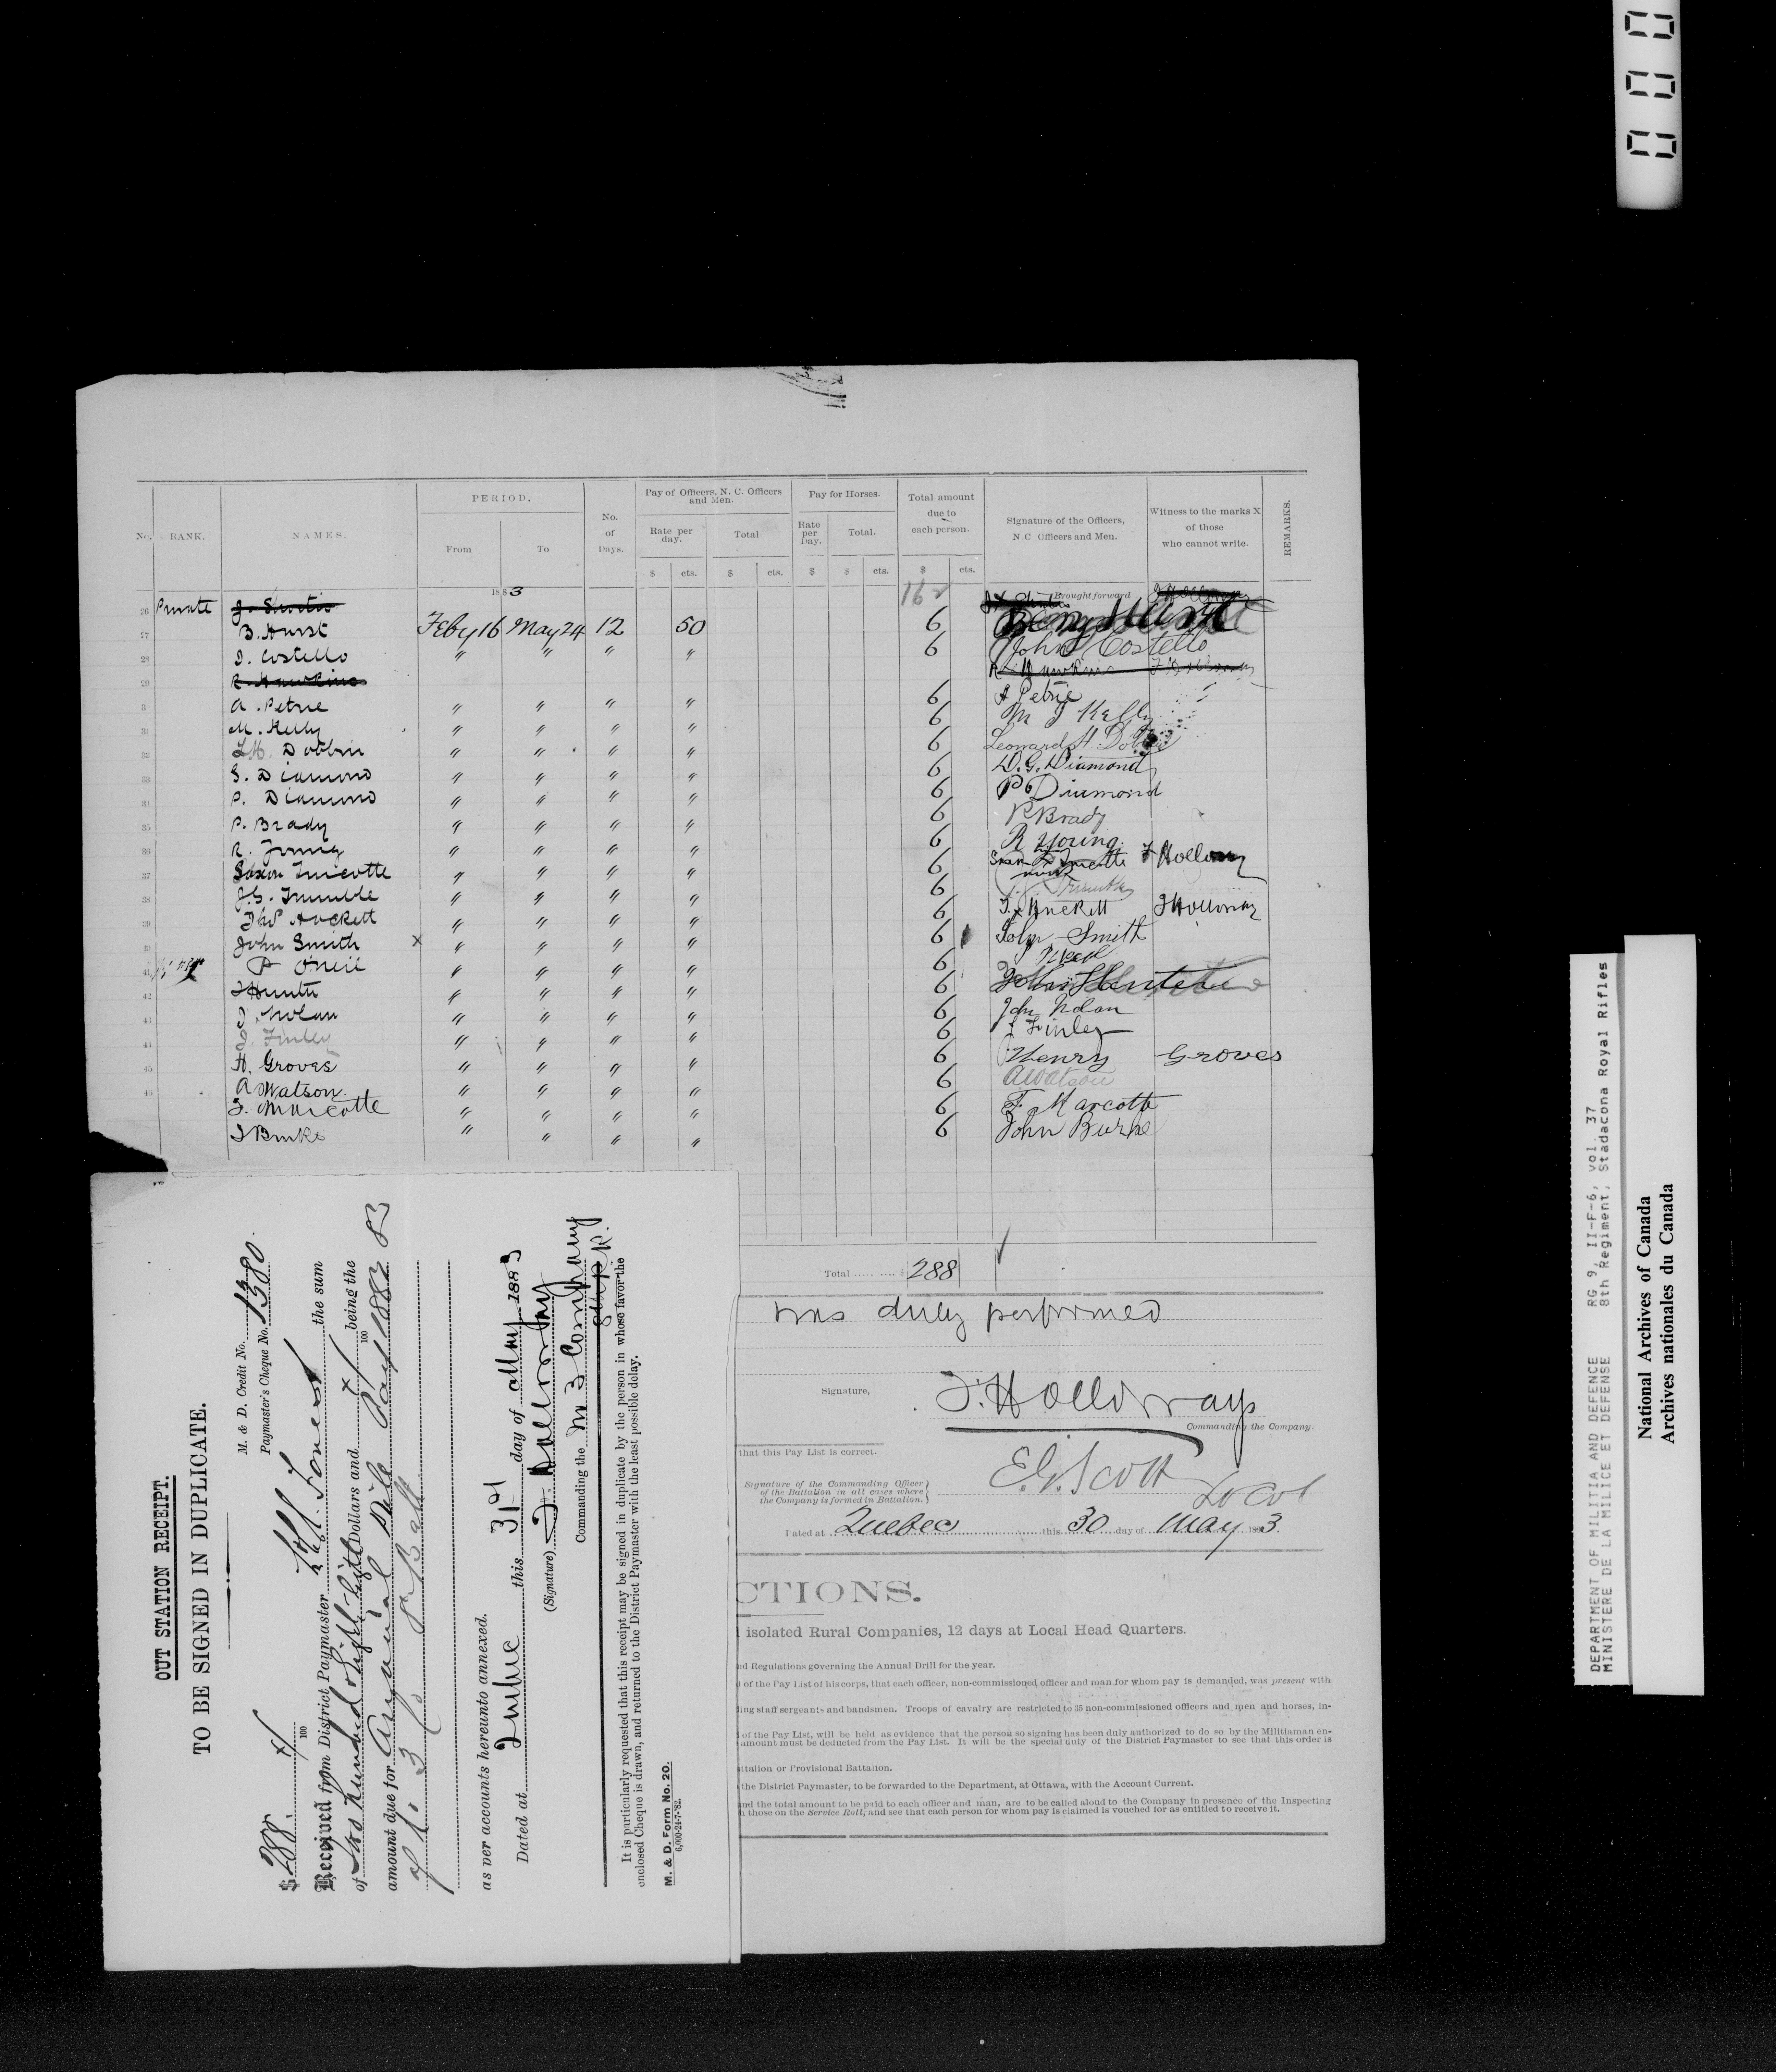 PERIOD.
Pay of Officers, N. C. Officers and Men.
Pay for Horses.
Total amount due to each person.
Signature of the Officers, N.C Officers and Men.
Witness to the marks X of those who cannot write.
REMARKS.
No. RANK. NAMES. From To No. of Days. Rate per day. Total Rate per Day. Total.
$ cts. $ cts. $ $ cts. $ cts.
1883 162 Brought forward
26 Private
27 B. Hurst Feby 16 May 24 12 50 6
28 J. Costello " " " " 6 John Costello
29 R. Hawkins R. Hawkins
A. Petrie " " " " 6 A Petrie
31 M. Kelly " " " " 6 M J Kelly
32 L.H. Dobbin " " " " 6 Leonard H. Dobbin
33 G. Diamond " " " " 6 D. G. Diamond
34 P. Diamond " " " " 6 P Diamond
35 P. Brady " " " " 6 P Brady
36 R. Young " " " " 6 R Young
37 " " " " 6 Holloway
38 J.G. Trumble " " " " 6
39 Thos Hackett " " " " 6 T. x Hackett J Holloway
40 John Smith x " " " " 6 John Smith
41 P O'Neil " " " " 6
42 J Hunter " " " " 6
43 J. Nolan " " " " 6 John Nolan
44 J. Finley " " " " 6 J Finley
45 H. Groves " " " " 6 Henry Groves
46 A Watson " " " " 6 A Watson
F. Marcotte " " " " 6 F. Marcotte
J Burke " " " " 6 John Burke
Total $ 288
was duly performed
Signature, J. Holloway
Commanding the Company.
that this Pay List is correct.
Signature of the Commanding Officer of the Battalion in all cases where the Company is formed in Battalion. E. G. Scott Lt Col
Dated at Quebec this 30 day of May 1883.
CTIONS.
isolated Rural Companies, 12 days at Local Head Quarters.
nd Regulations governing the Annual Drill for the year.
of the Pay List of his corps, that each officer, non-commissioned officer and man for whom pay is demanded, was present with
ing staff sergeants and bandsmen. Troops of cavalry are restricted to 35 non-commissioned officers and men and horses, in-
of the Pay List, will be held as evidence that the person so signing has been duly authorized to do so by the Militiaman en-
amount must be deducted from the Pay List. It will be the special duty of the District Paymaster to see that this order is
ttalion or Provisional Battalion.
the District Paymaster, to be forwarded to the Department, at Ottawa, with the Account Current.
nd the total amount to be paid to each officer and man, are to be called aloud to the Company in presence of the Inspecting
those on the Service Roll, and see that each person for whom pay is claimed is vouched for as entitled to receive it.
OUT STATION RECEIPT.
TO BE SIGNED IN DUPLICATE.
M. & D. Credit No.
Paymaster's Cheque No. 1380.
$ 288. x/100
Received from District Paymaster the sum
of Two hundred & Eighty Eight Dollars and x/100 being the
amount due for Annual Drill Pay 1882 83
of No 3 Co 8 Batt
as per accounts hereunto annexed.
Dated at Quebec this 31st day of May 1883
(Signature) J. Holloway
Commanding the No 3 Company
It is particularly requested that this receipt may be signed in duplicate by the person in whose favor the
enclosed Cheque is drawn, and returned to the District Paymaster with the least possible delay.
M. & D. Form No. 20.
6,000-24-7-'82.
DEPARTMENT OF MILITIA AND DEFENCE RG 9, II-F-6, vol. 37
MINISTERE DE LA MILICE ET DEFENSE 8th Regiment, Stadacona Royal Rifles
National Archives of Canada
Archives nationales du Canada
000